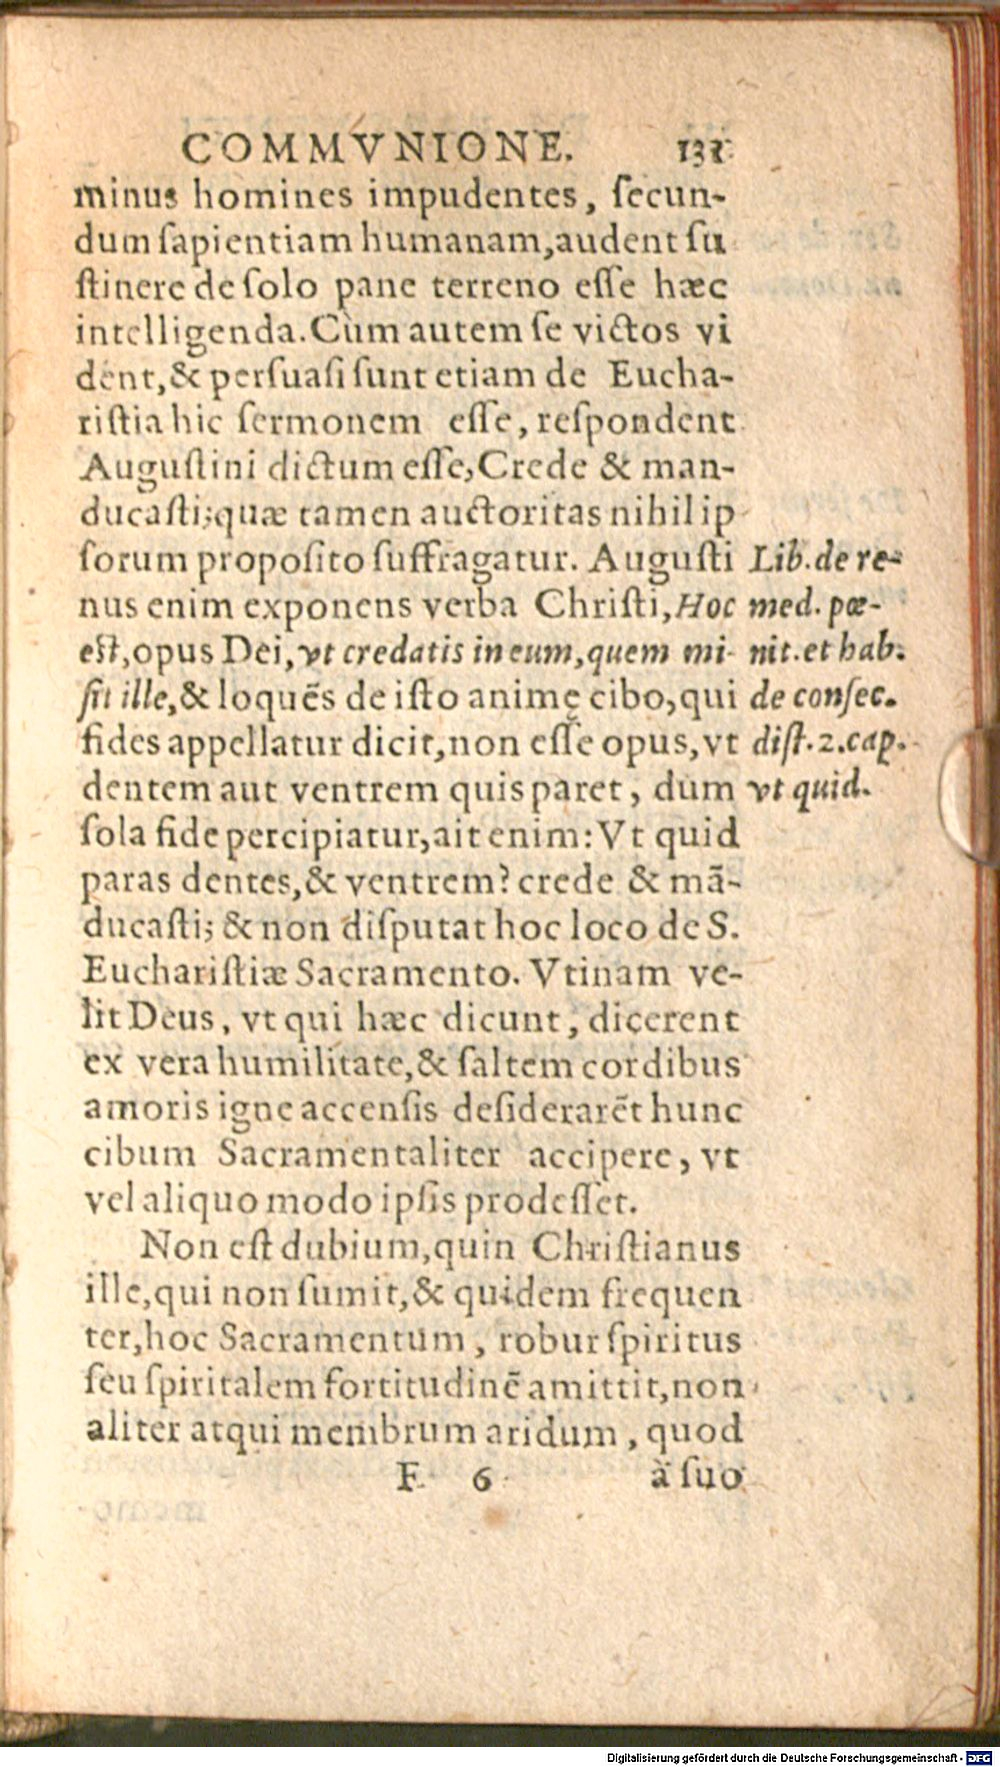 COMMVNIONE. 131
minus homines impudentes, ſecun-
dum ſapientiam humanam,audent ſu
ſtinere de ſolo pane terreno eſſe hæc
intelligenda.Cùm autem ſe victos vi
dent,& perſuaſi ſunt etiam de Eucha-
riſtia hic ſermonem eſſe, reſpondent
Auguſtini dictum eſſe,Crede & man-
ducaſti;quæ tamen auctoritas nihil ip
ſorum propoſito ſuffragatur. Auguſti
nus enim exponens verba Chriſti,Hoc
eſt,opus Dei,vt credatis in eum,quem mi-
ſit ille,& loquẽs de iſto animę cibo,qui
fides appellatur dicit,non eſſe opus,vt
dentem aut ventrem quis paret, dum
ſola fide percipiatur,ait enim: Vt quid
paras dentes,& ventrem? crede & mã-
ducaſti; & non diſputat hoc loco de S.
Euchariſtiæ Sacramento. Vtinam ve-
lit Deus, vt qui hæc dicunt, dicerent
ex vera humilitate,& ſaltem cordibus
amoris igne accenſis deſiderarẽt hunc
cibum Sacramentaliter accipere, vt
vel aliquo modo ipſis prodeſſet.
Non eſt dubium,quin Chriſtianus
ille,qui non ſumit,& quidem frequen
ter,hoc Sacramentum, robur ſpiritus
ſeu ſpiritalem fortitudinẽ amittit,non
aliter atqui membrum aridum, quod
F 6 à ſuo
Lib. de re-
med. pœ-
nit. et hab.
de conſec.
diſt. 2. cap.
vt quid.
Digitalisierung gefördert durch die Deutsche Forschungsgemeinschaft - DFG